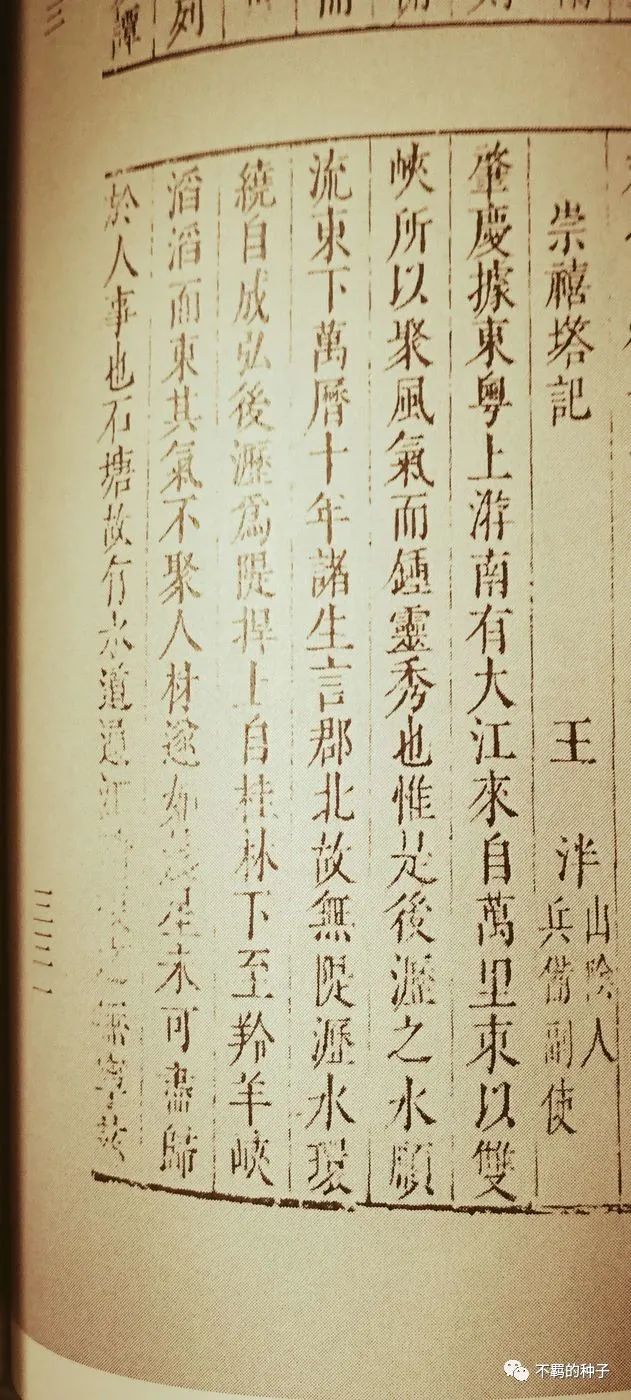 崇禧塔記 王泮 山陰人兵備副使
肇慶據東粵上游南有大江來自萬里束以雙
峽所以聚風氣而鍾靈秀也惟是後瀝之水順
流東下萬曆十年諸生言郡北故無隄瀝水環
繞自成弘後瀝爲隄捍上自桂林下至羚羊峽
滔滔而東其氣不聚人材遂如晨星未可盡歸
於人事也石塘故有水道通江之無寧茲
譚
不羁的种子